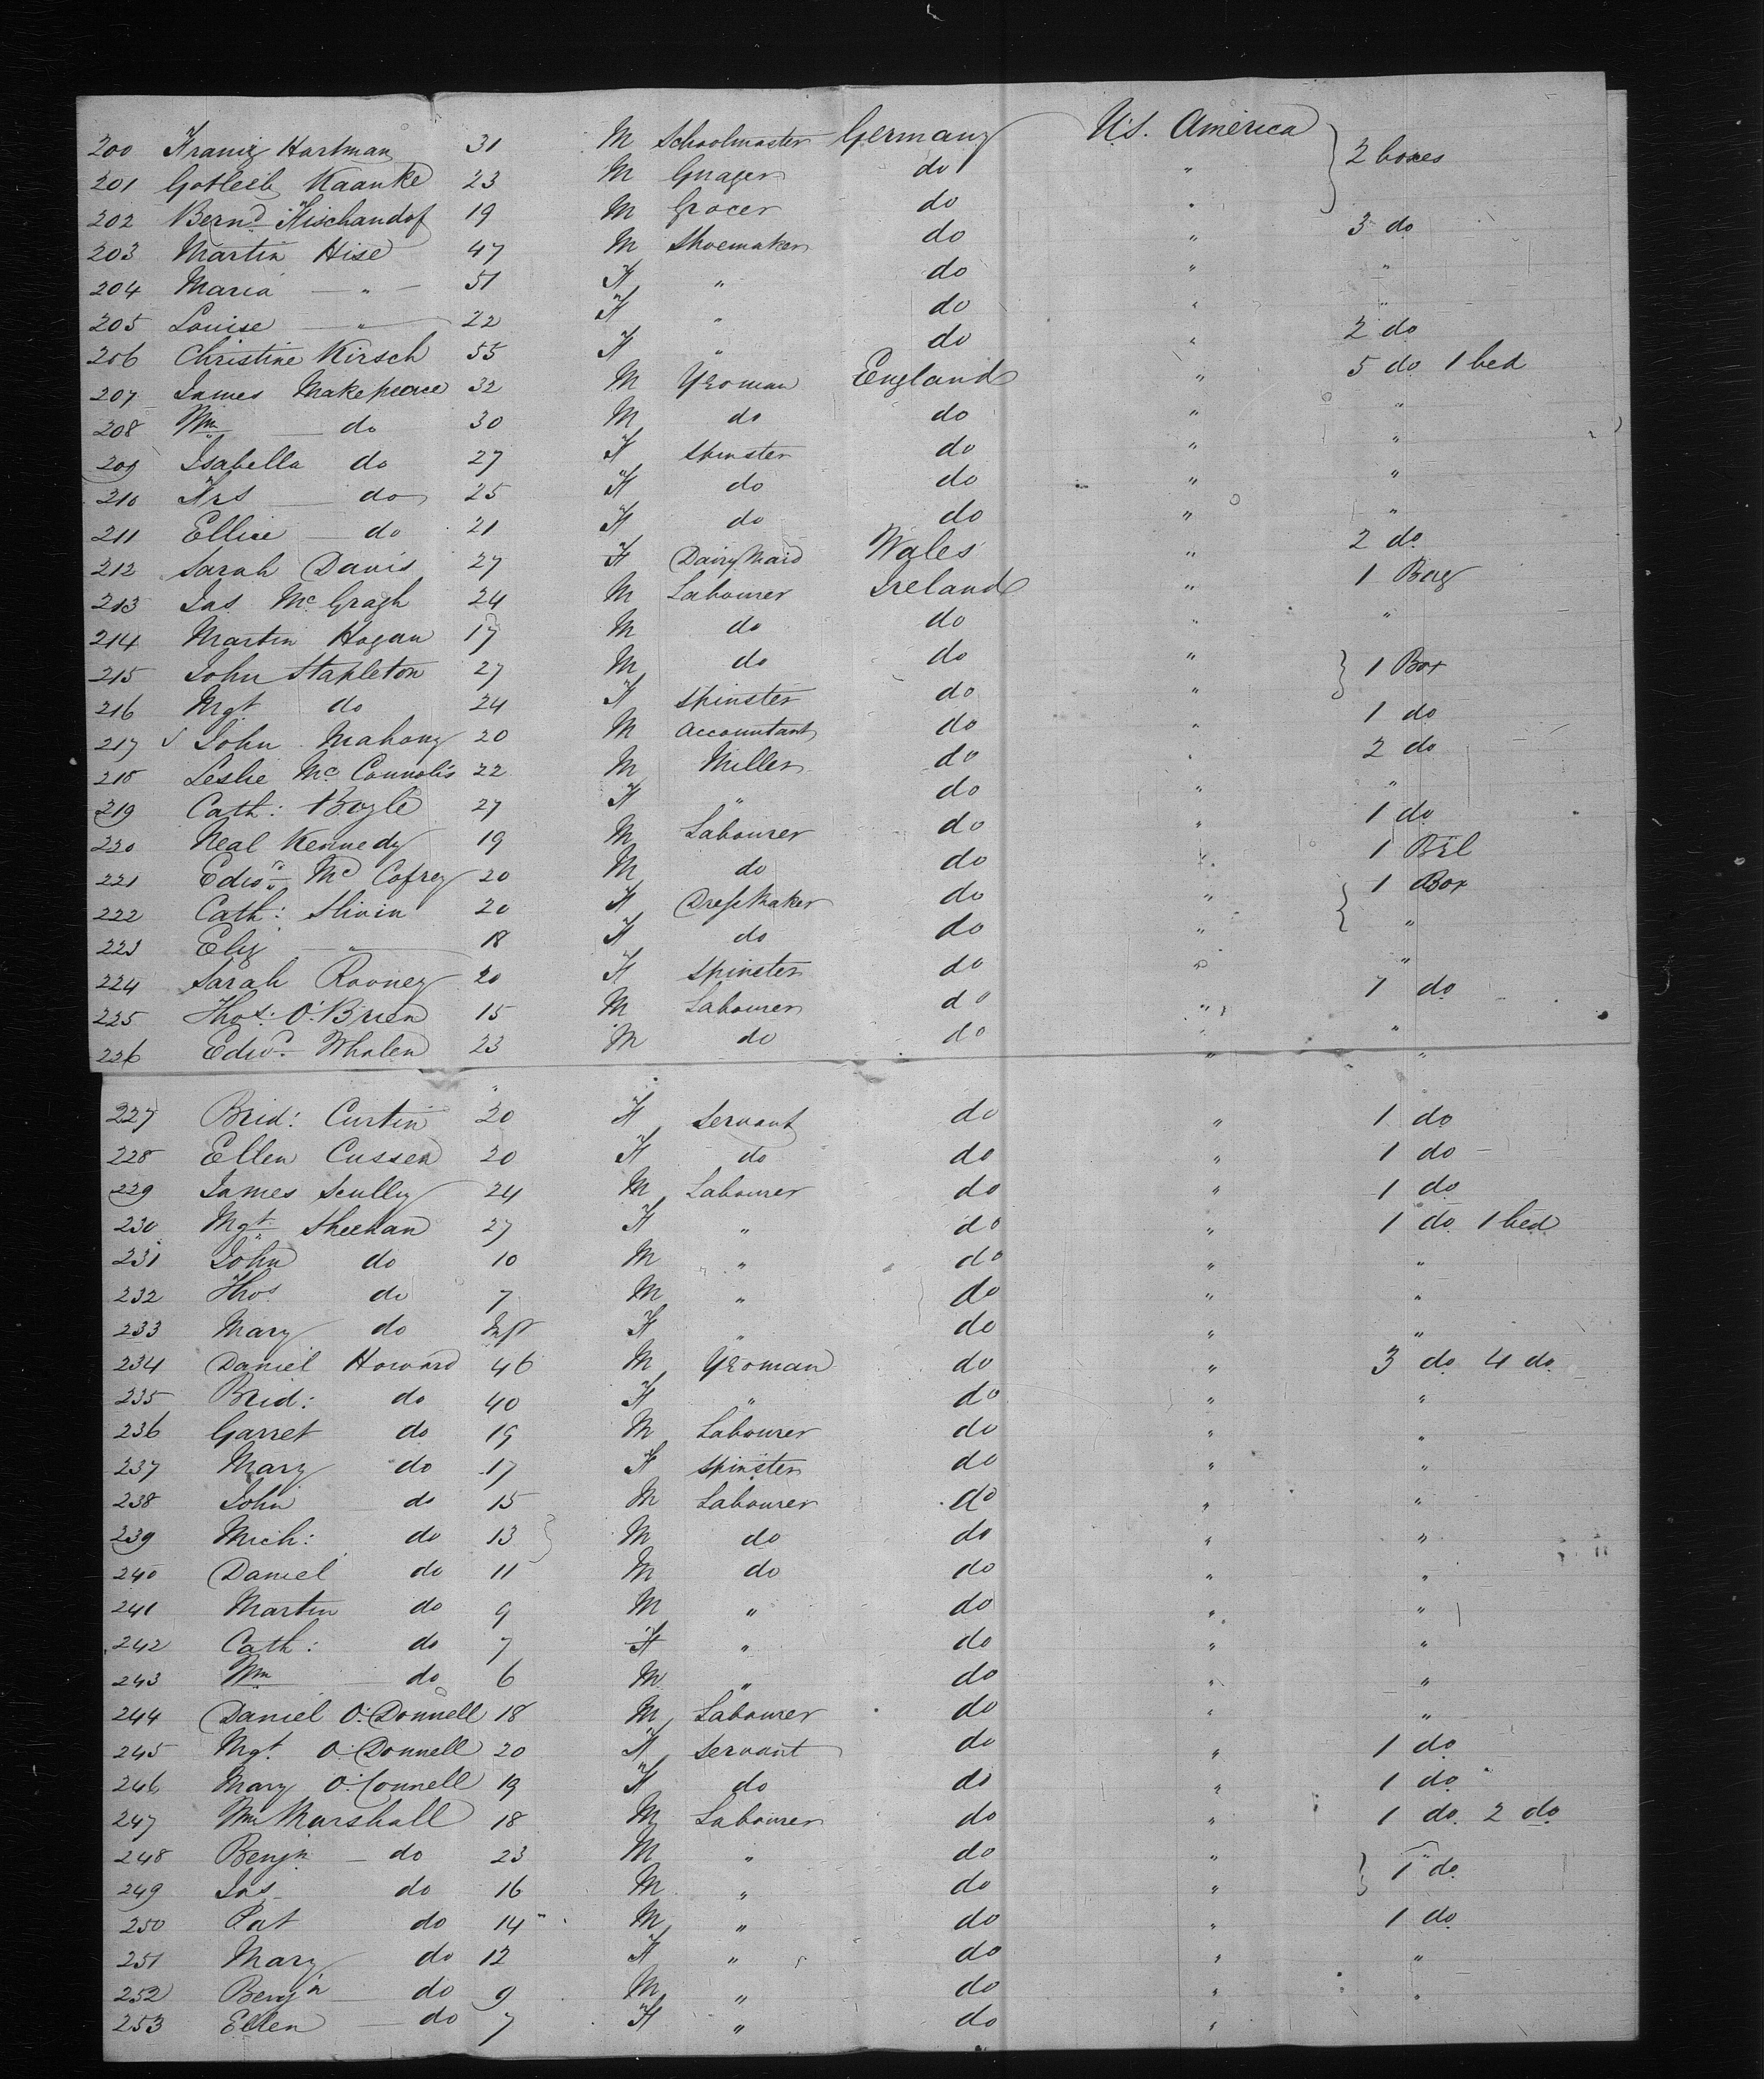 200 Franiz Hartman 31 M Schoolmaster Germany U.S. America 2 boxes
201 Gotleib Kaanke 23 M do "
202 Bernd Fischandof 19 M Grocer do "
203 Martin Hise 47 M Shoemaker do " 3 do
204 Maria " 51 F " do " "
205 Louise " 22 F " do " "
206 Christine Kirsch 55 F " do " 2 do
207 James Makepeace 32 M Yeoman England " 5 do 1 bed
208 Wm do 30 M do do " "
209 Isabella do 27 F Spinster do " "
210 Frs do 25 F do do " "
211 Ellice do 21 F do do " "
212 Sarah Davis 27 F Dairy Maid Wales " 2 do
213 Jas Mc Gragh 24 M Labourer Ireland " 1 Bag
214 Martin Hogan 17 M do do " "
215 John Stapleton 27 M do do " 1 Box
216 Mgt do 24 F Spinster do "
217 John Mahony 20 M Accountant do " 1 do
218 Leslie Mc 22 M Miller do " 2 do
219 Cath: Boyle 27 F " do " "
220 Neal Kennedy 19 M Labourer do " 1 do
221 Edwd Mc Cofrey 20 M do do " 1 Brl
222 Cath: Slivin 20 F Dress Maker do " 1 Box
223 Eliz " 18 F do do " "
224 Sarah Rooney 20 F Spinster do " "
225 Thos: O'Brien 15 M Labourer do " 1 do
226 Edwd Whalen 23 M do do " "
227 Brid: Curtin 20 F Servant do " 1 do
228 Ellen Cussen 20 F do do " 1 do
229 James Scully 24 M Labourer do " 1 do
230 Mgt Sheehan 27 F " do " 1 do 1 bed
231 John do 10 M " do " "
232 Thos do 7 M " do " "
233 Mary do Inft F " do " "
234 Daniel Howard 46 M Yeoman do " 3 do 4 do
235 Brid: do 40 F " do " "
236 Garret do 19 M Labourer do " "
237 Mary do 17 F Spinster do " "
238 John do 15 M Labourer do " "
239 Mich: do 13 M do do " "
240 Daniel do 11 M do do " "
241 Martin do 9 M " do " "
242 Cath: do 7 F " do " "
243 Wm do 6 M " do " "
244 Daniel O'Donnell 18 M Labourer do " "
245 Mgt. O'Donnell 20 F Servant do " 1 do
246 Mary O'Connell 19 F do do " 1 do
247 Wm Marshall 18 M Labourer do " 1 do 2 do
248 Benjn do 23 M " do " "
249 Jas do 16 M " do " 1 do
250 Pat do 14 M " do " 1 do
251 Mary do 12 F " do " "
252 Benjn do 9 M " do " "
253 Ellen do 7 F " do "